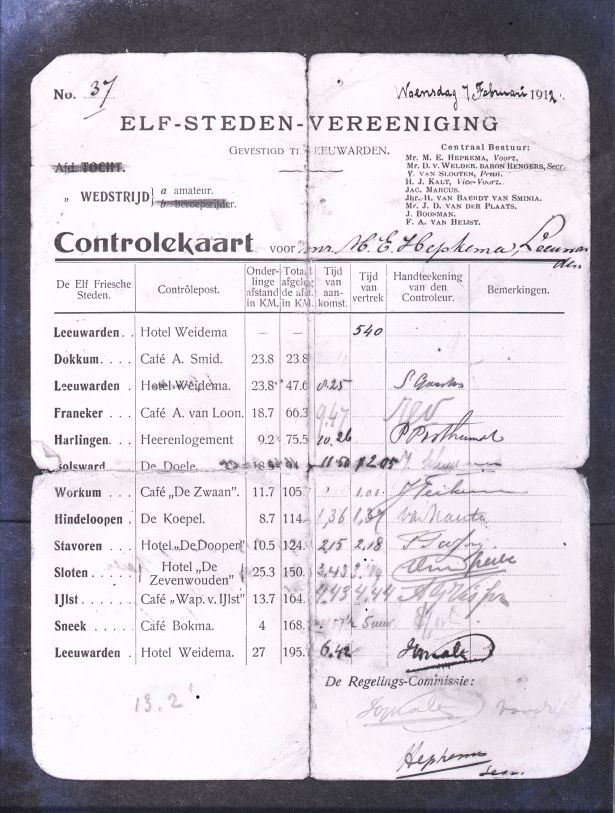 No. 37
Woensdag 7 Februari 1912.
ELF-STEDEN-VEREENIGING
GEVESTIGD TE LEEUWARDEN.
Centraal Bestuur:
Mr. M. E. HEPKEMA, Voorz.
Mr. D. v. WELDER. BARON RENGERS, Secr.
Y. VAN SLOOTEN, Penn.
H. J. KALT, Vice-Voorz.
JAC. MARCUS.
Jhr. H. VAN BAERDT VAN SMINIA.
Mr. J. D. VAN DER PLAATS.
J. BOOSMAN.
F. A. VAN HEIJST.
Afd. TOCHT.
„ WEDSTRIJD
a amateur.
b beroepsrijder.
Controlekaart voor mr. M. E. Hepkema, Leeuwarden
De Elf Friesche Steden. Contrôlepost. Onderlinge afstand in KM. Totaal afgelegde afst. in KM. Tijd van aankomst. Tijd van vertrek Handteekening van den Controleur. Bemerkingen.
Leeuwarden . . Hotel Weidema — — 540
Dokkum . . . . Café A. Smid. 23.8 23.8
Leeuwarden . Hotel Weidema. 23.8 47.6 8.25
Franeker . . . Café A. van Loon. 18.7 66.3 9.47
Harlingen . . . Heerenlogement 9.2 75.5 10.26
olsward De Doele. 11.50 12.05
Workum . . . Café „De Zwaan". 11.7 105. 1.00
Hindeloopen . De Koepel. 8.7 114. 1,36 1,37
Stavoren . . . Hotel „De Doopen" 10.5 124. 215 2.18
Sloten . . . . . Hotel „De Zevenwouden" 25.3 150. 3.43
IJlst . . . . . . Café „Wap. v. IJlst" 13.7 164. 4,43 4,44
Sneek . . . . . Café Bokma. 4 168. 5 uur
Leeuwarden . Hotel Weidema. 27 195. 6.42
De Regelings-Commissie:
13.2
Hepkema